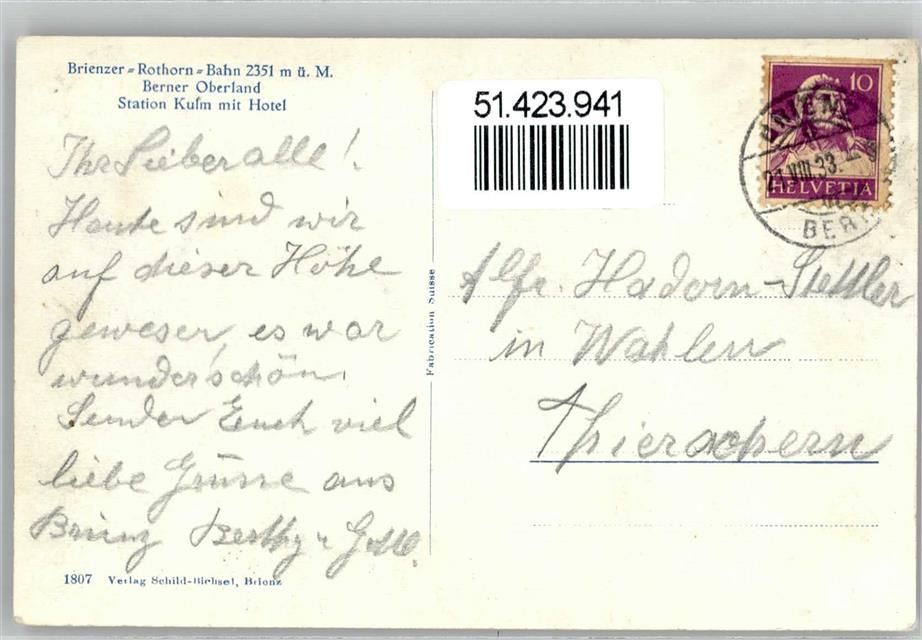 Brienzer=Rothorn=Bahn 2351 m ü. M.
Berner Oberland
Station Kulm mit Hotel
51.423.941
10
HELVETIA
21.VIII.33.
BER
Ihr Lieben alle!
Heute sind wir
auf dieser Höhe
gewesen, es war
wunderschön.
Senden Euch viel
liebe Grüsse aus
Brienz Berthy u
1807 Verlag Schild-Bichsel, Brienz
Fabrication Suisse
Alfr. Hadorn-Stettler
in Wahlen
Thierachern